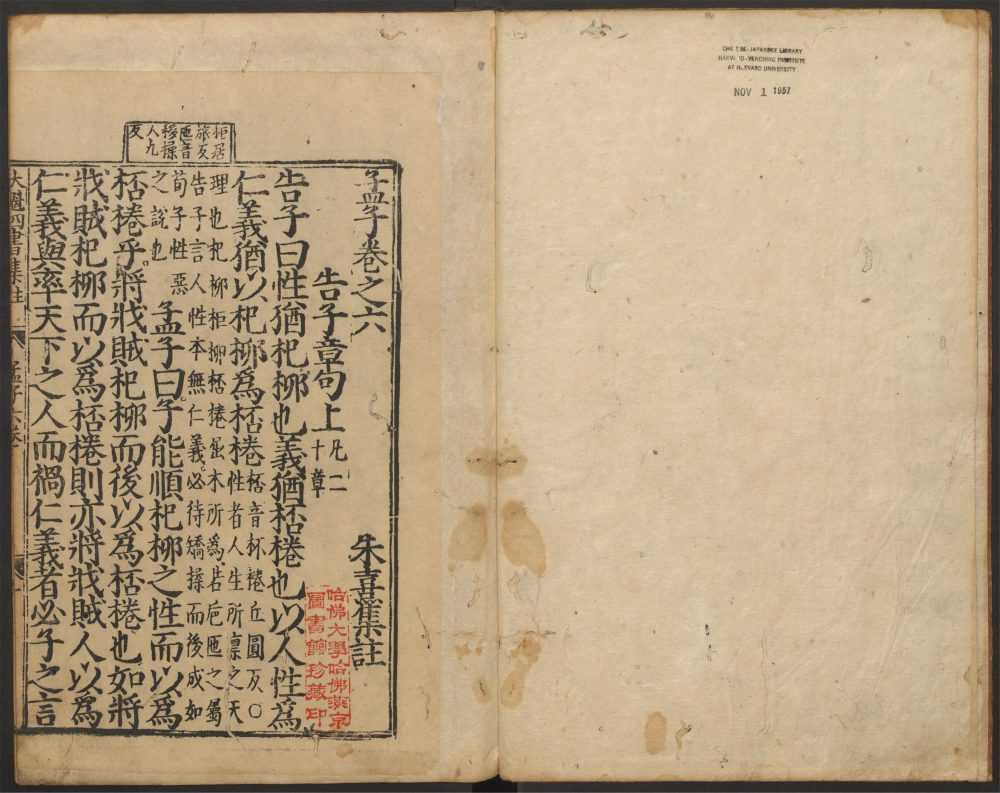 CHINESE-JAPANESE LIBRARY
HARVARD-YENCHING INSTITUTE
AT HARVARD UNIVERSITY
NOV 1 1957
柜居
旅反
匜音
移揉
人九
反
孟子卷之六
朱熹集註
告子章句上
凡二
十章
告子曰性猶杞柳也義猶桮棬也以人性爲
仁義猶以杞柳爲桮棬
桮音杯棬丘圓反○
性者人生所稟之天
理也杞柳柜柳桮棬屈木所爲若卮匜之屬
告子言人性本無仁義必待矯揉而後成如
荀子性惡
之說也
孟子曰子能順杞柳之性而以爲
桮棬乎將戕賊杞柳而後以爲桮棬也如將
戕賊杞柳而以爲桮棬則亦將戕賊人以爲
仁義與率天下之人而禍仁義者必子之言
大魁四書集註
孟子六卷
哈佛大學哈佛燕京
圖書館珍藏印